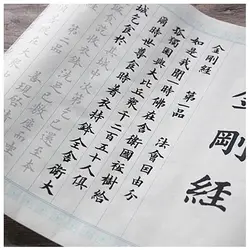 金剛經
金剛經
第一品 法會因由分
如是我聞一時佛在舍衛國祇樹給
孤獨園與大比丘衆千二百五十人俱
爾時世尊食時著衣持鉢入舍衛大
城乞食於其城中次第乞已還至本
收衣鉢洗足已敷座而
第二品 善現啟請